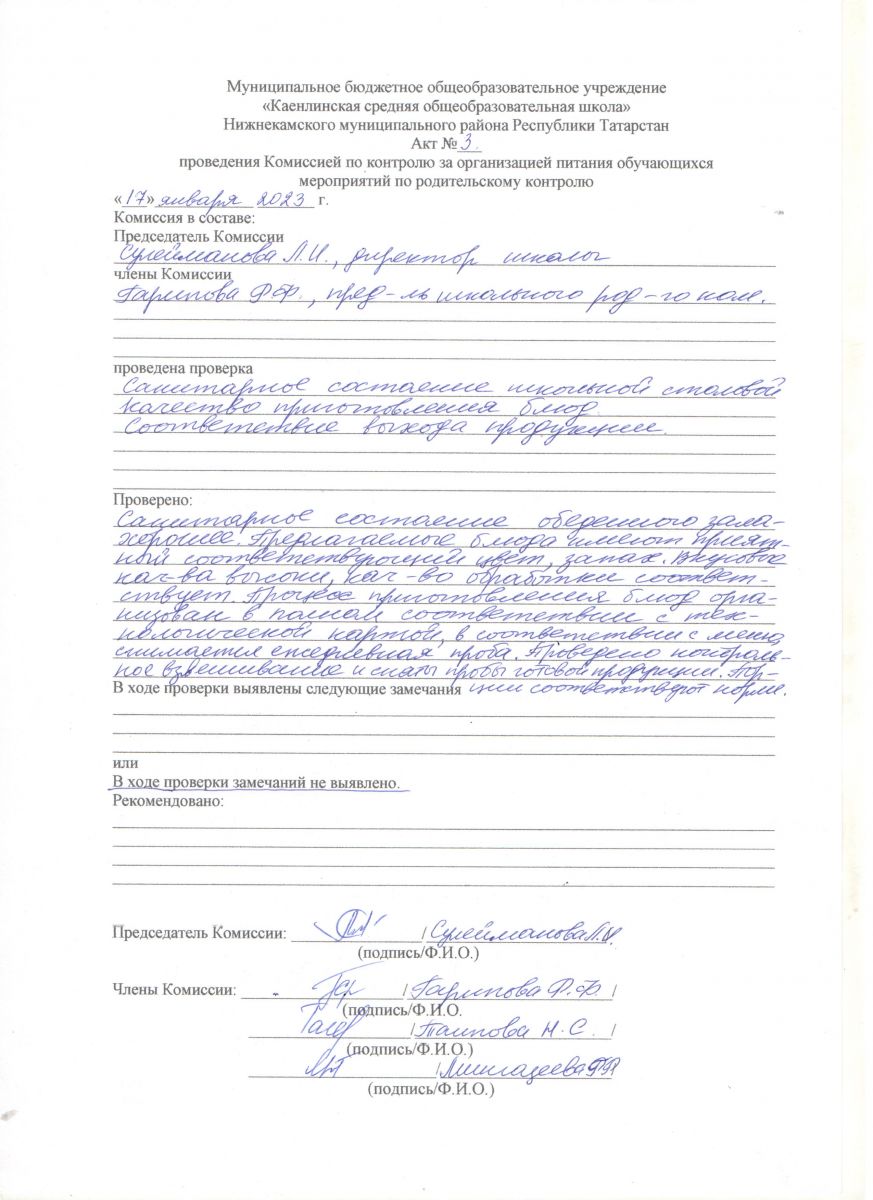 Муниципальное бюджетное общеобразовательное учреждение
«Каенлинская средняя общеобразовательная школа»
Нижнекамского муниципального района Республики Татарстан
Акт № 3
проведения Комиссией по контролю за организацией питания обучающихся
мероприятий по родительскому контролю
«17» января 2023 г.
Комиссия в составе:
Председатель Комиссии
Сулейманова Л.И., директор школы
члены Комиссии
Гарипова Ф.Ф., пред-ль школьного род-го ком.
проведена проверка
Санитарное состаение школьной столовой
качество приготовления блюд.
Соответствие выхода продукции.
Проверено:
Санитарное состаение обеденного зала-
хорошее. Предлагаемые блюда имеют прият-
ный соответствующий цвет, запах. Вкусовые
кач-ва высоки, кач-во обработки соответ-
ствует. Процесс приготовления блюд орга-
низован в полном соответствии с тех-
нологической картой, в соответствии с меню,
снимается ежедневная проба. Проведено контроль-
ное взвешивание и сняты пробы готовой продукции. Пор-
В ходе проверки выявлены следующие замечания ции соответствуют норме.
или
В ходе проверки замечаний не выявлено.
Рекомендовано:
Председатель Комиссии: / Сулейманова Л.И.
(подпись/Ф.И.О.)
Члены Комиссии: / Гарипова Ф.Ф. /
(подпись/Ф.И.О.
/ Таипова Н.С. /
(подпись/Ф.И.О.)
/
(подпись/Ф.И.О.)